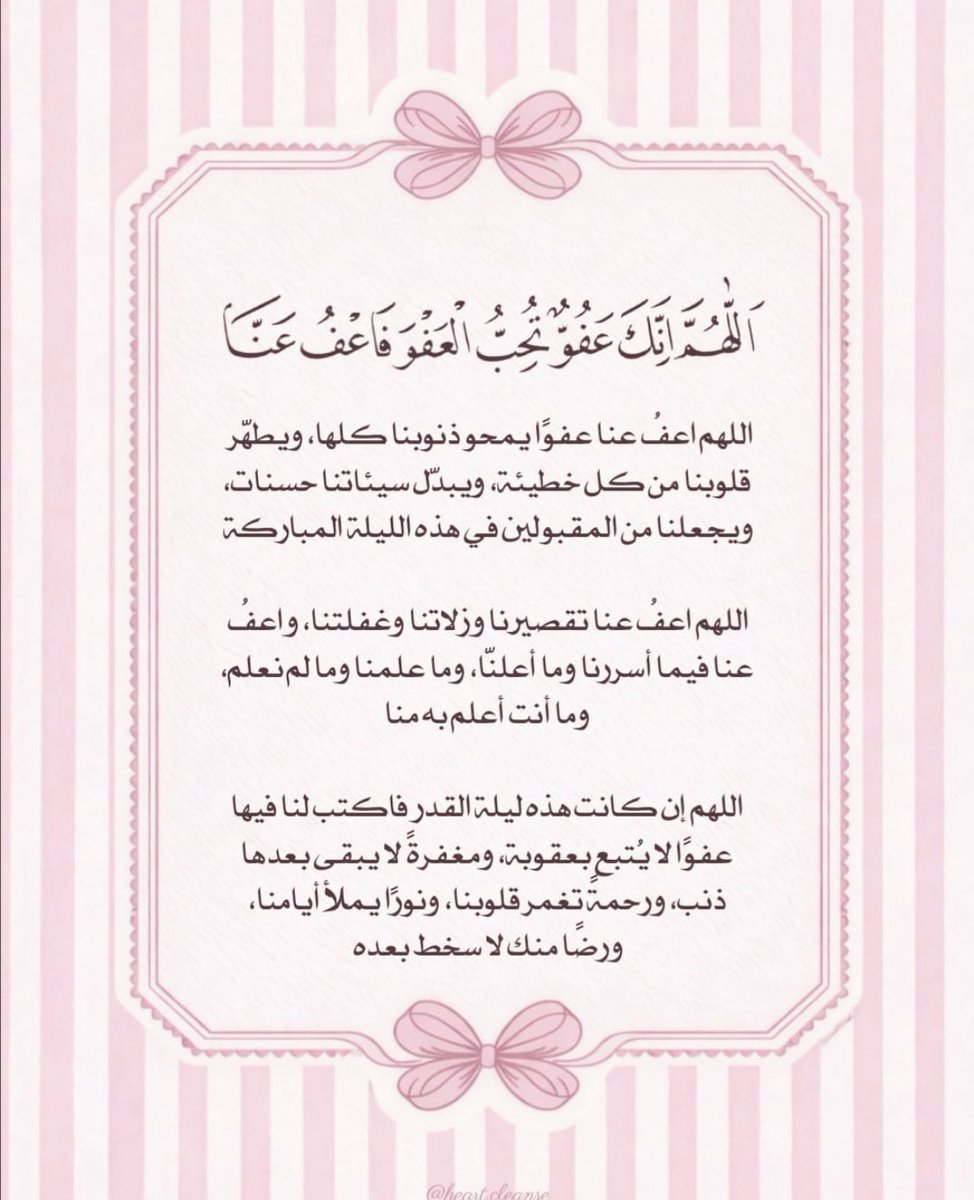 اَللّٰهُمَّ اِنَّكَ عَفُوٌّ تُحِبُّ الْعَفْوَ فَاعْفُ عَنَّا
اللهم اعفُ عنا عفوًا يمحو ذنوبنا كلها، ويطهّر
قلوبنا من كل خطيئة، ويبدّل سيئاتنا حسنات،
ويجعلنا من المقبولين في هذه الليلة المباركة
اللهم اعفُ عنا تقصيرنا وزلاتنا وغفلتنا، واعفُ
عنا فيما أسررنا وما أعلنّا، وما علمنا وما لم نعلم،
وما أنت أعلم به منا
اللهم إن كانت هذه ليلة القدر فاكتب لنا فيها
عفوًا لا يُتبع بعقوبة، ومغفرةً لا يبقى بعدها
ذنب، ورحمةً تغمر قلوبنا، ونورًا يملأ أيامنا،
ورضًا منك لا سخط بعده
@heart.cleanse